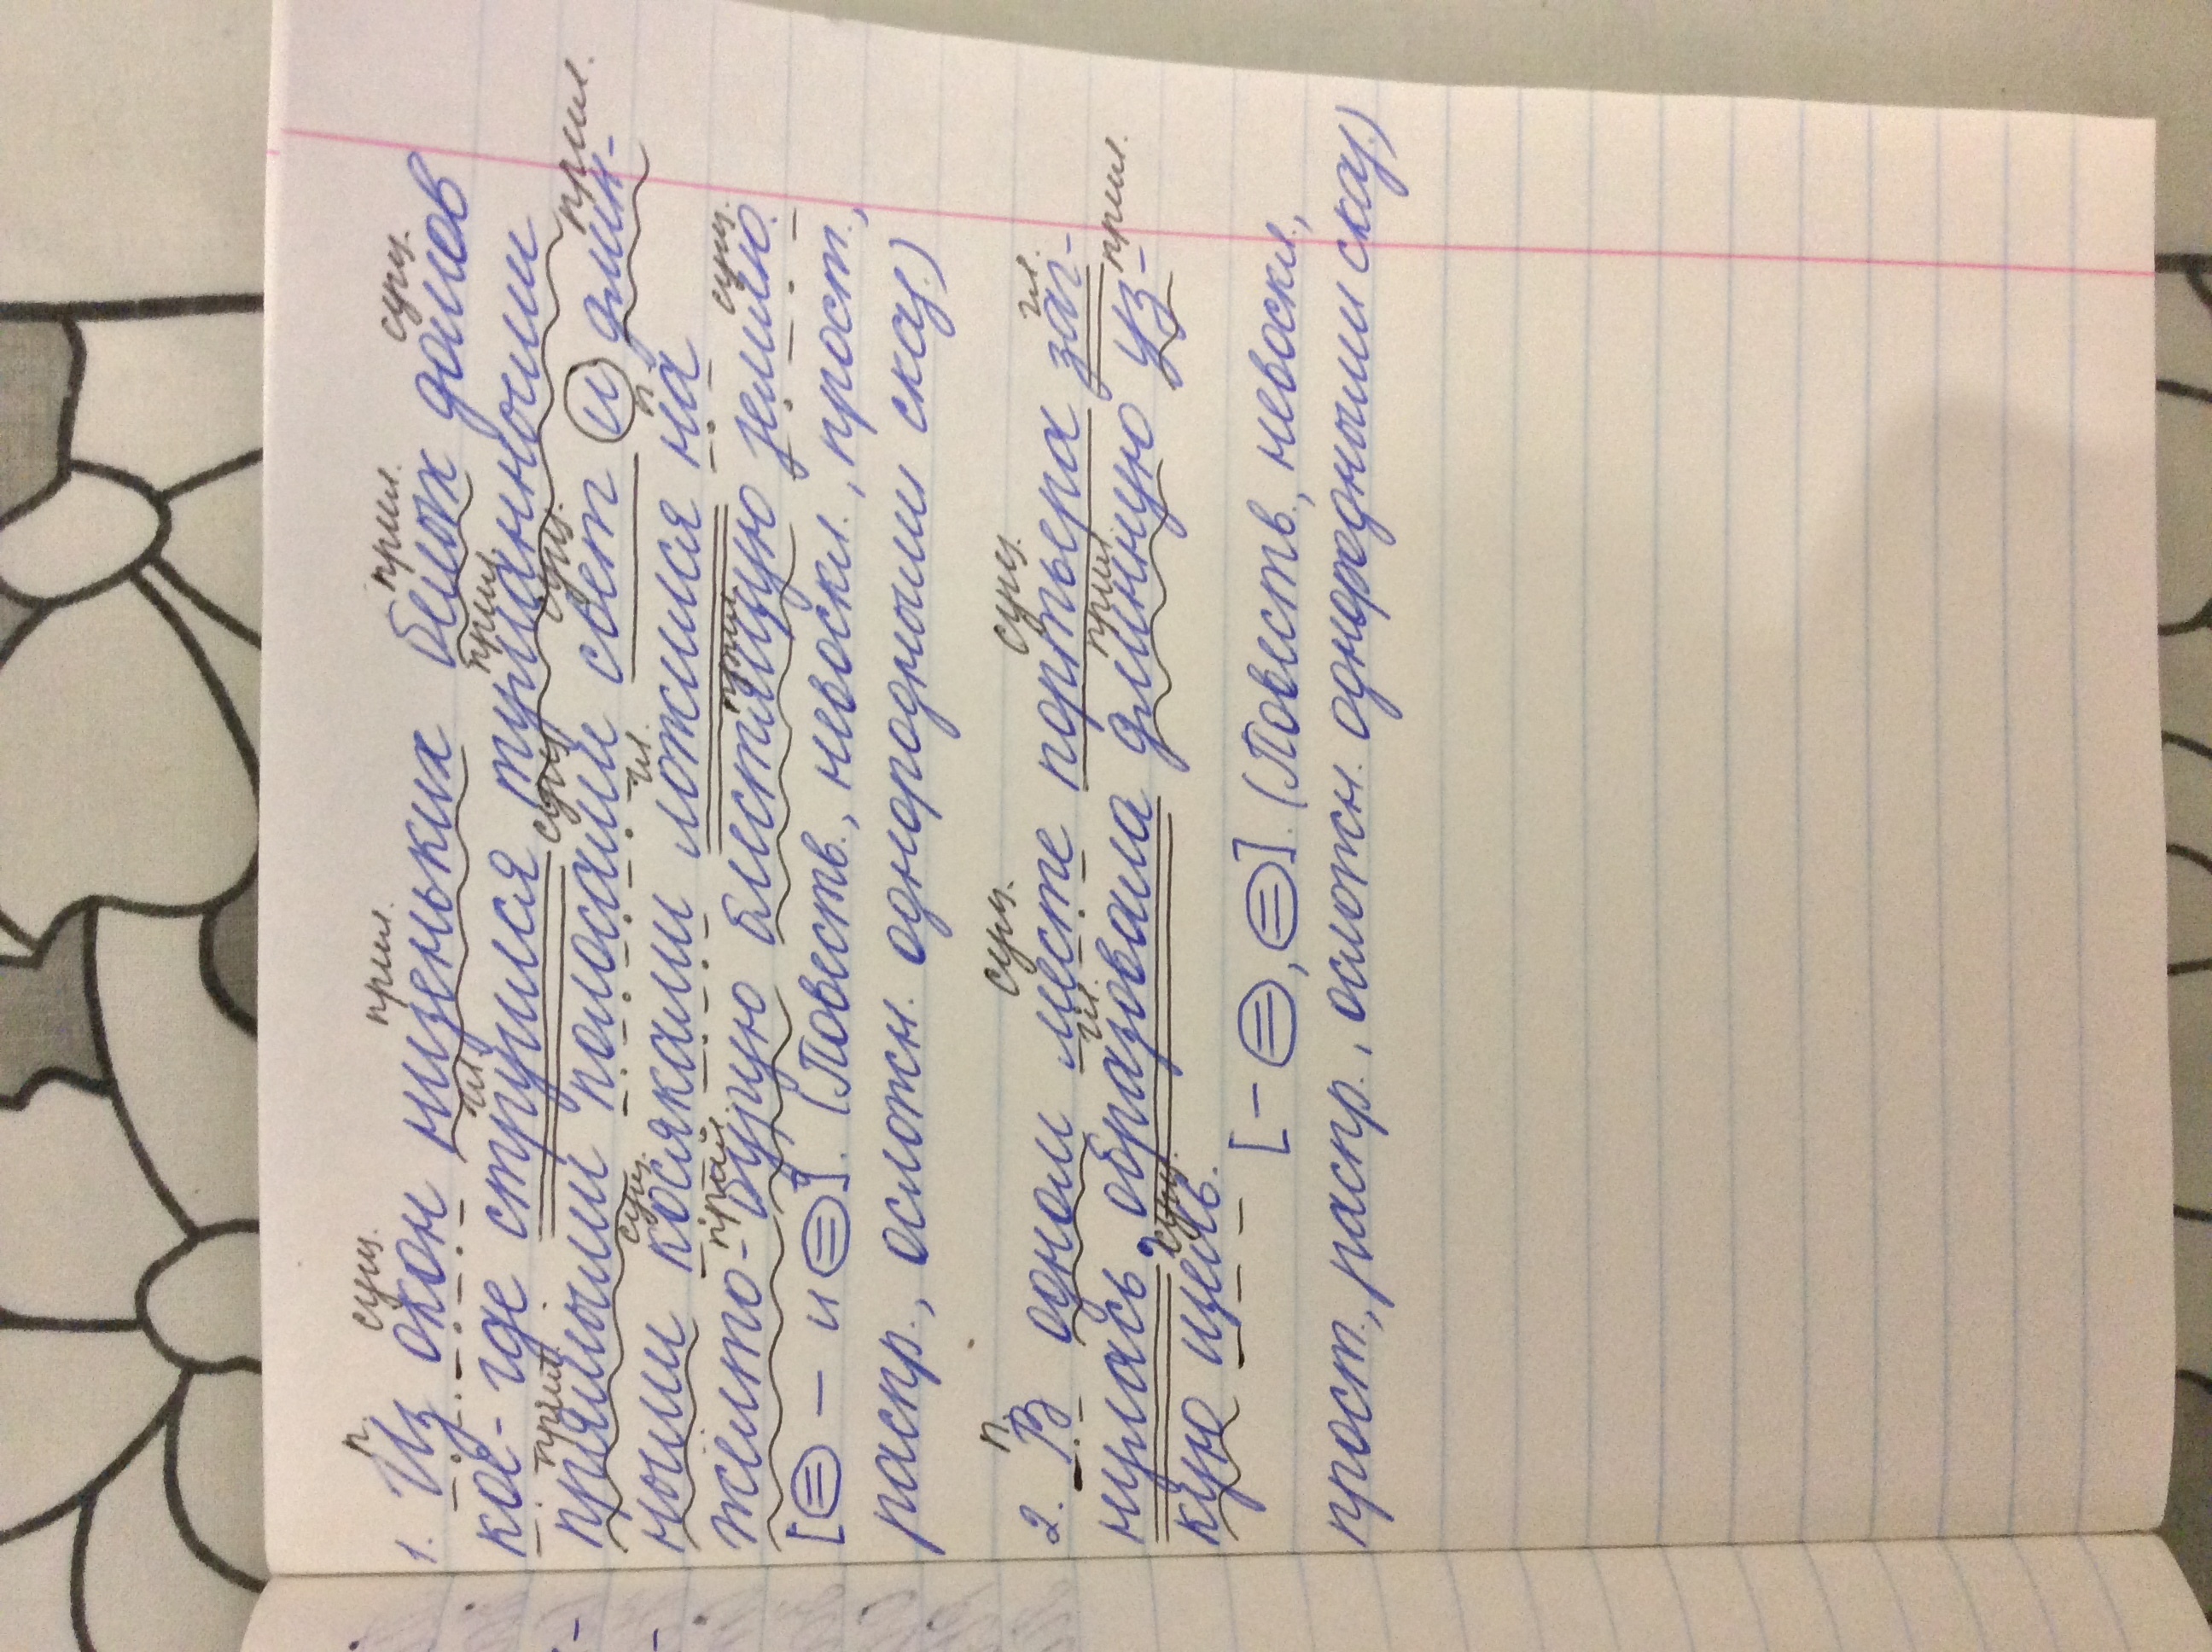 п. сущ. прил. прил. сущ.
1. Из окон низеньких белых домов
гл. прил.
кое-где струился туманными
прил. сущ. сущ. прил.
прямыми полосами свет и длин-
сущ. гл. п.
ными косяками ложился на
прил. прил. сущ.
желто-бурую блестящую землю.
[= – и =]. (Повеств., невоскл., прост.,
распр., осложн. однородными сказ.)
п. сущ. сущ. гл.
2. В одном месте портьера заг-
гл. прил. прил.
нулась, образовала длинную уз-
сущ.
кую щель.
[– =, =]. (Повеств., невоскл.,
прост., распр., осложн. однофедными сказ.)